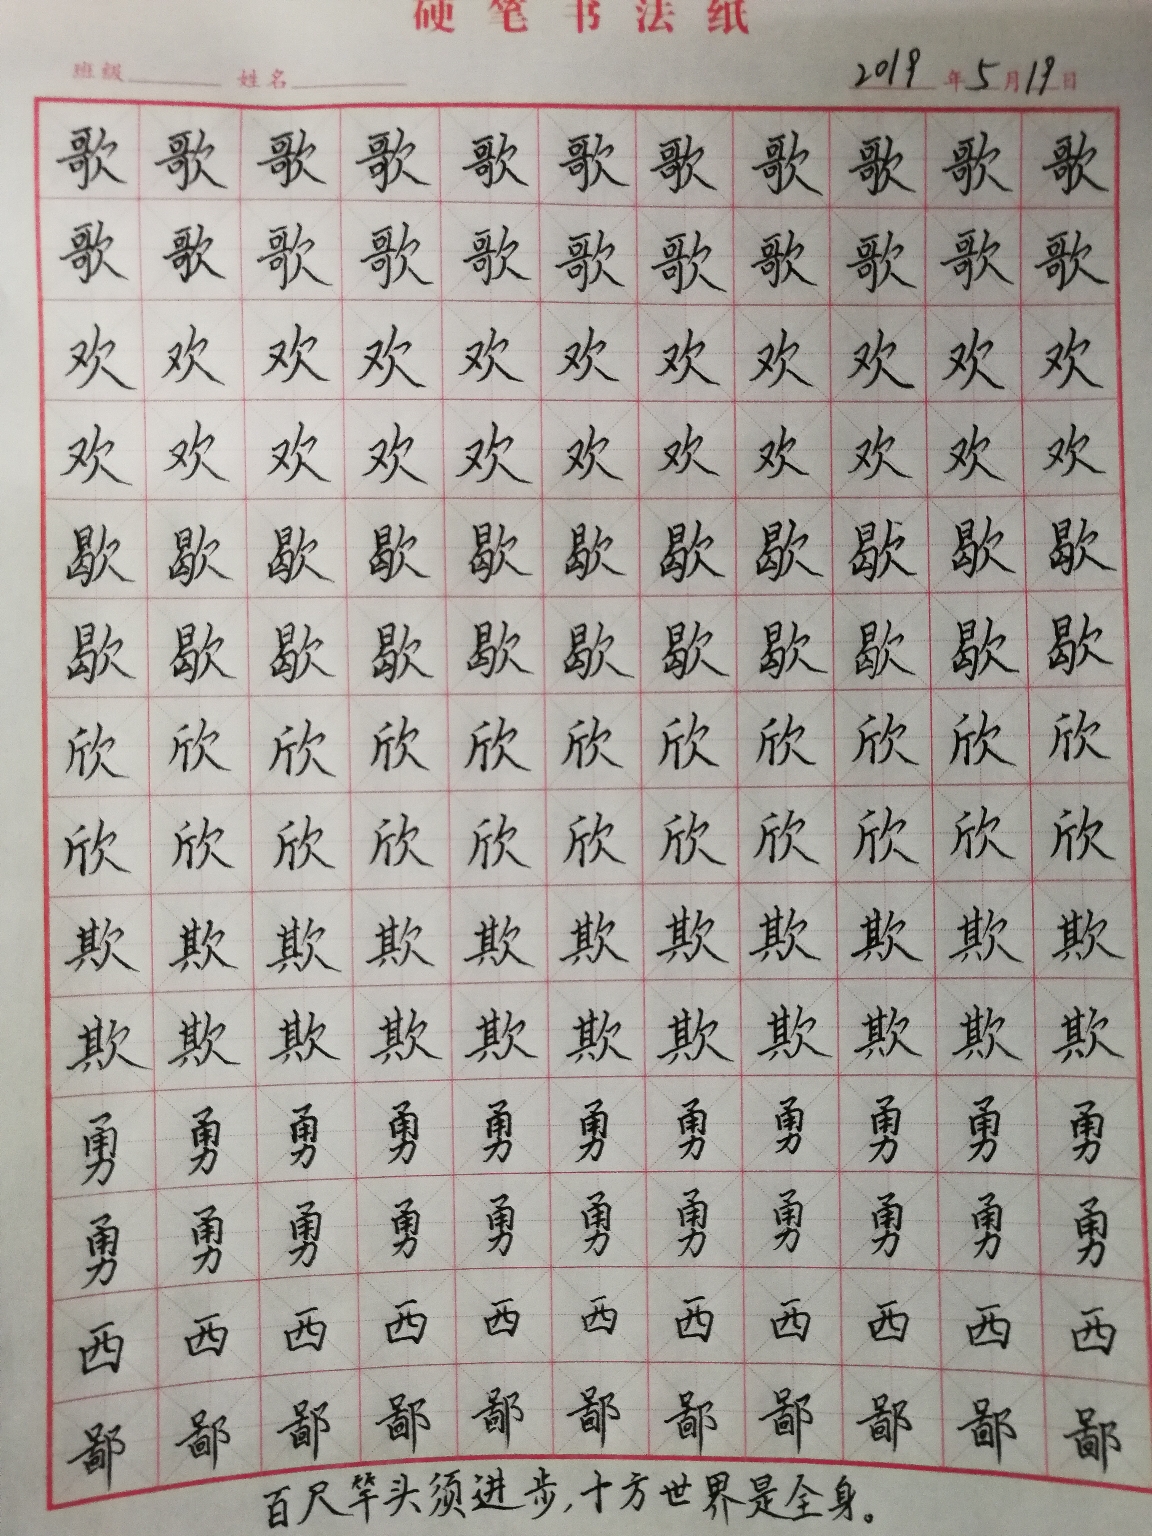 硬笔书法纸
班级 姓名 2019年5月19日
歌歌歌歌歌歌歌歌歌歌歌
歌歌歌歌歌歌歌歌歌歌歌
欢欢欢欢欢欢欢欢欢欢欢
欢欢欢欢欢欢欢欢欢欢欢
歇歇歇歇歇歇歇歇歇歇歇
歇歇歇歇歇歇歇歇歇歇歇
欣欣欣欣欣欣欣欣欣欣欣
欣欣欣欣欣欣欣欣欣欣欣
欺欺欺欺欺欺欺欺欺欺欺
欺欺欺欺欺欺欺欺欺欺欺
勇勇勇勇勇勇勇勇勇勇勇
勇勇勇勇勇勇勇勇勇勇勇
西西西西西西西西西西西
鄙鄙鄙鄙鄙鄙鄙鄙鄙鄙鄙
百尺竿头须进步,十方世界是全身。